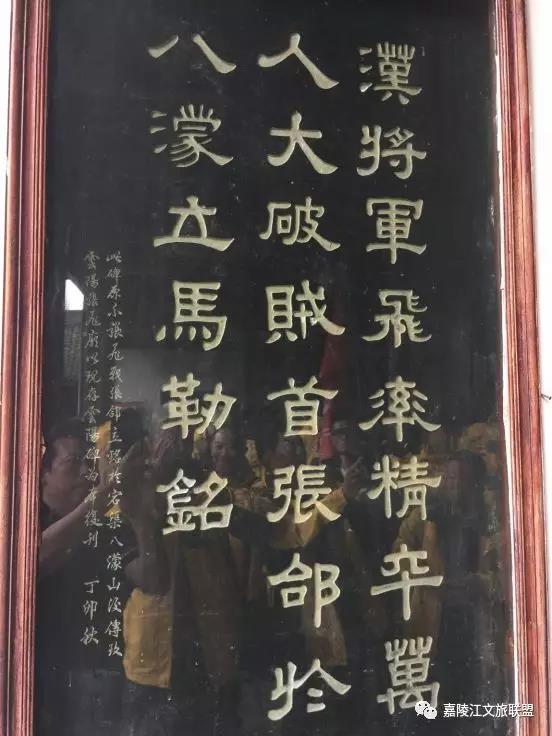 漢將軍飛率精卒萬
人大破賊首張郃於
八濛立馬勒銘
此碑原系張飛戰張郃立銘於宕渠八濛山後傳玖
雲陽張飛廟以現存雲陽碑為本復刊 丁卯秋
嘉陵江文旅联盟